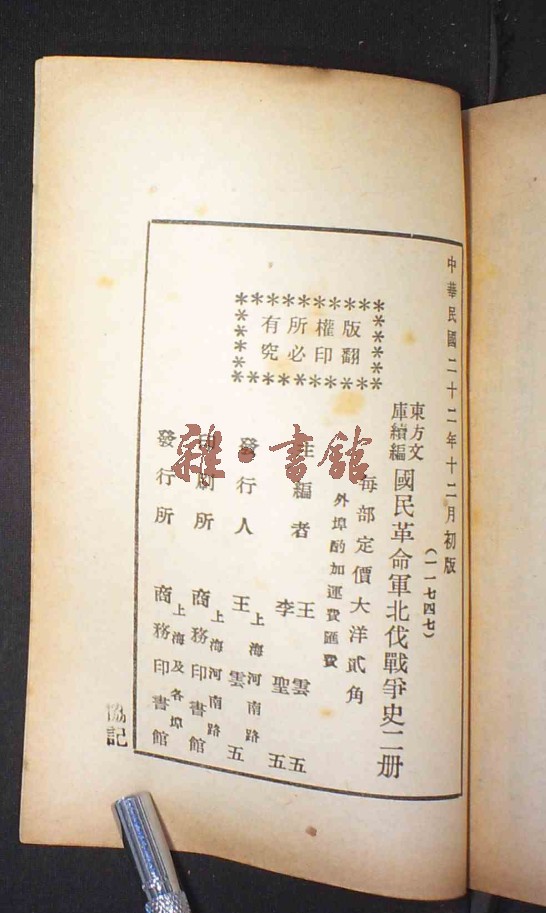 中華民國二十二年十二月初版
(一一七四七)
東方文庫續編
國民革命軍北伐戰爭史二册
每部定價大洋貳角
外埠酌加運費匯費
版權所有
翻印必究
主編者 王雲五 李聖五
發行人 王雲五
上海河南路
印刷所 商務印書館
上海河南路
發行所 商務印書館
上海及各埠
協記
雜·書館